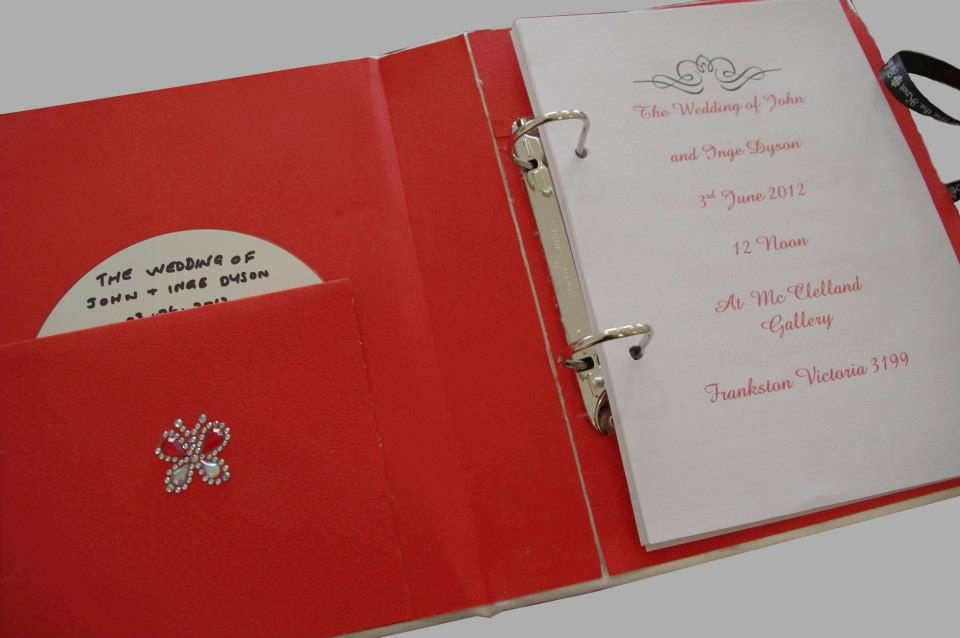 THE WEDDING OF
JOHN + INGE DYSON
The Wedding of John
and Inge Dyson
3rd June 2012
12 Noon
At Mc Clelland
Gallery
Frankston Victoria 3199
the Knot